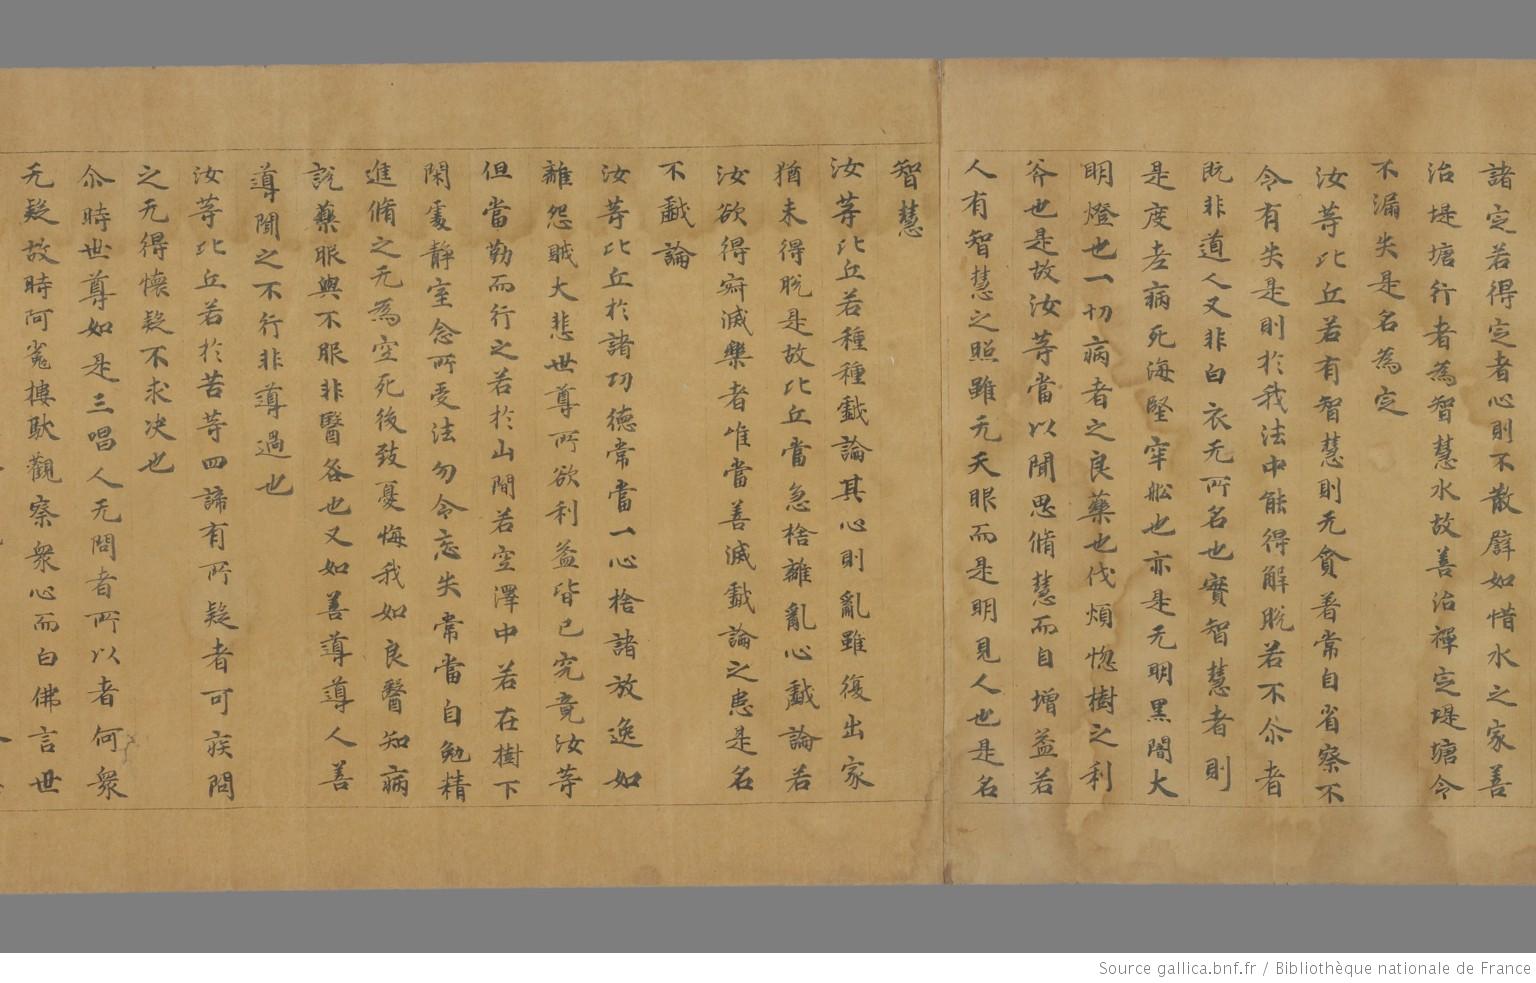 諸定若得定者心則不散譬如惜水之家善
治堤塘行者為智慧水故善治禪定堤塘令
不漏失是名為定
汝等比丘若有智慧則无貪著常自省察不
令有失是則於我法中能得解脫若不尒者
既非道人又非白衣无所名也實智慧者則
是度老病死海堅牢船也亦是无明黑闇大
明燈也一切病者之良藥也伐煩惚樹之利
斧也是故汝等當以聞思脩慧而自增益若
人有智慧之照雖无天眼而是明見人也是名
智慧
汝等比丘若種種戲論其心則亂雖復出家
猶未得脫是故比丘當急捨離亂心戲論若
汝欲得寂滅樂者唯當善滅戲論之患是名
不戲論
汝等比丘於諸功德常當一心捨諸放逸如
離怨賊大悲世尊所欲利益皆已究竟汝等
但當勤而行之若於山間若空澤中若在樹下
閑處靜室念所受法勿令忘失常當自勉精
進脩之无為空死後致憂悔我如良醫知病
說藥服與不服非醫咎也又如善導導人善
導聞之不行非導過也
汝等比丘若於苦等四諦有所疑者可疾問
之无得懷疑不求決也
尒時世尊如是三唱人无問者所以者何眾
无疑故時阿㝹樓馱觀察眾心而白佛言世
Source gallica.bnf.fr / Bibliothèque nationale de France